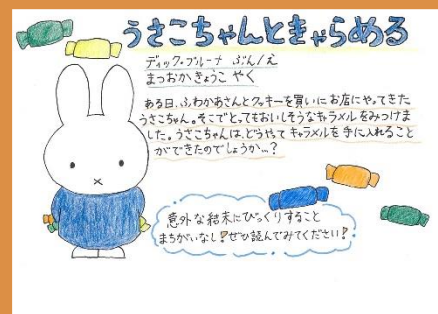 うさこちゃんときゃらめる
ディック・ブルーナ ぶん/え
まつおかきょうこ やく
ある日、ふわふわさんとクッキーを買いにお店にやってきた
うさこちゃん。そこでとってもおいしそうなキャラメルをみつけま
した。うさこちゃんは、どうやってキャラメルを手に入れること
ができたのでしょうか…?
意外な結末にびっくりすること
まちがいなし!ぜひ読んでみてください!